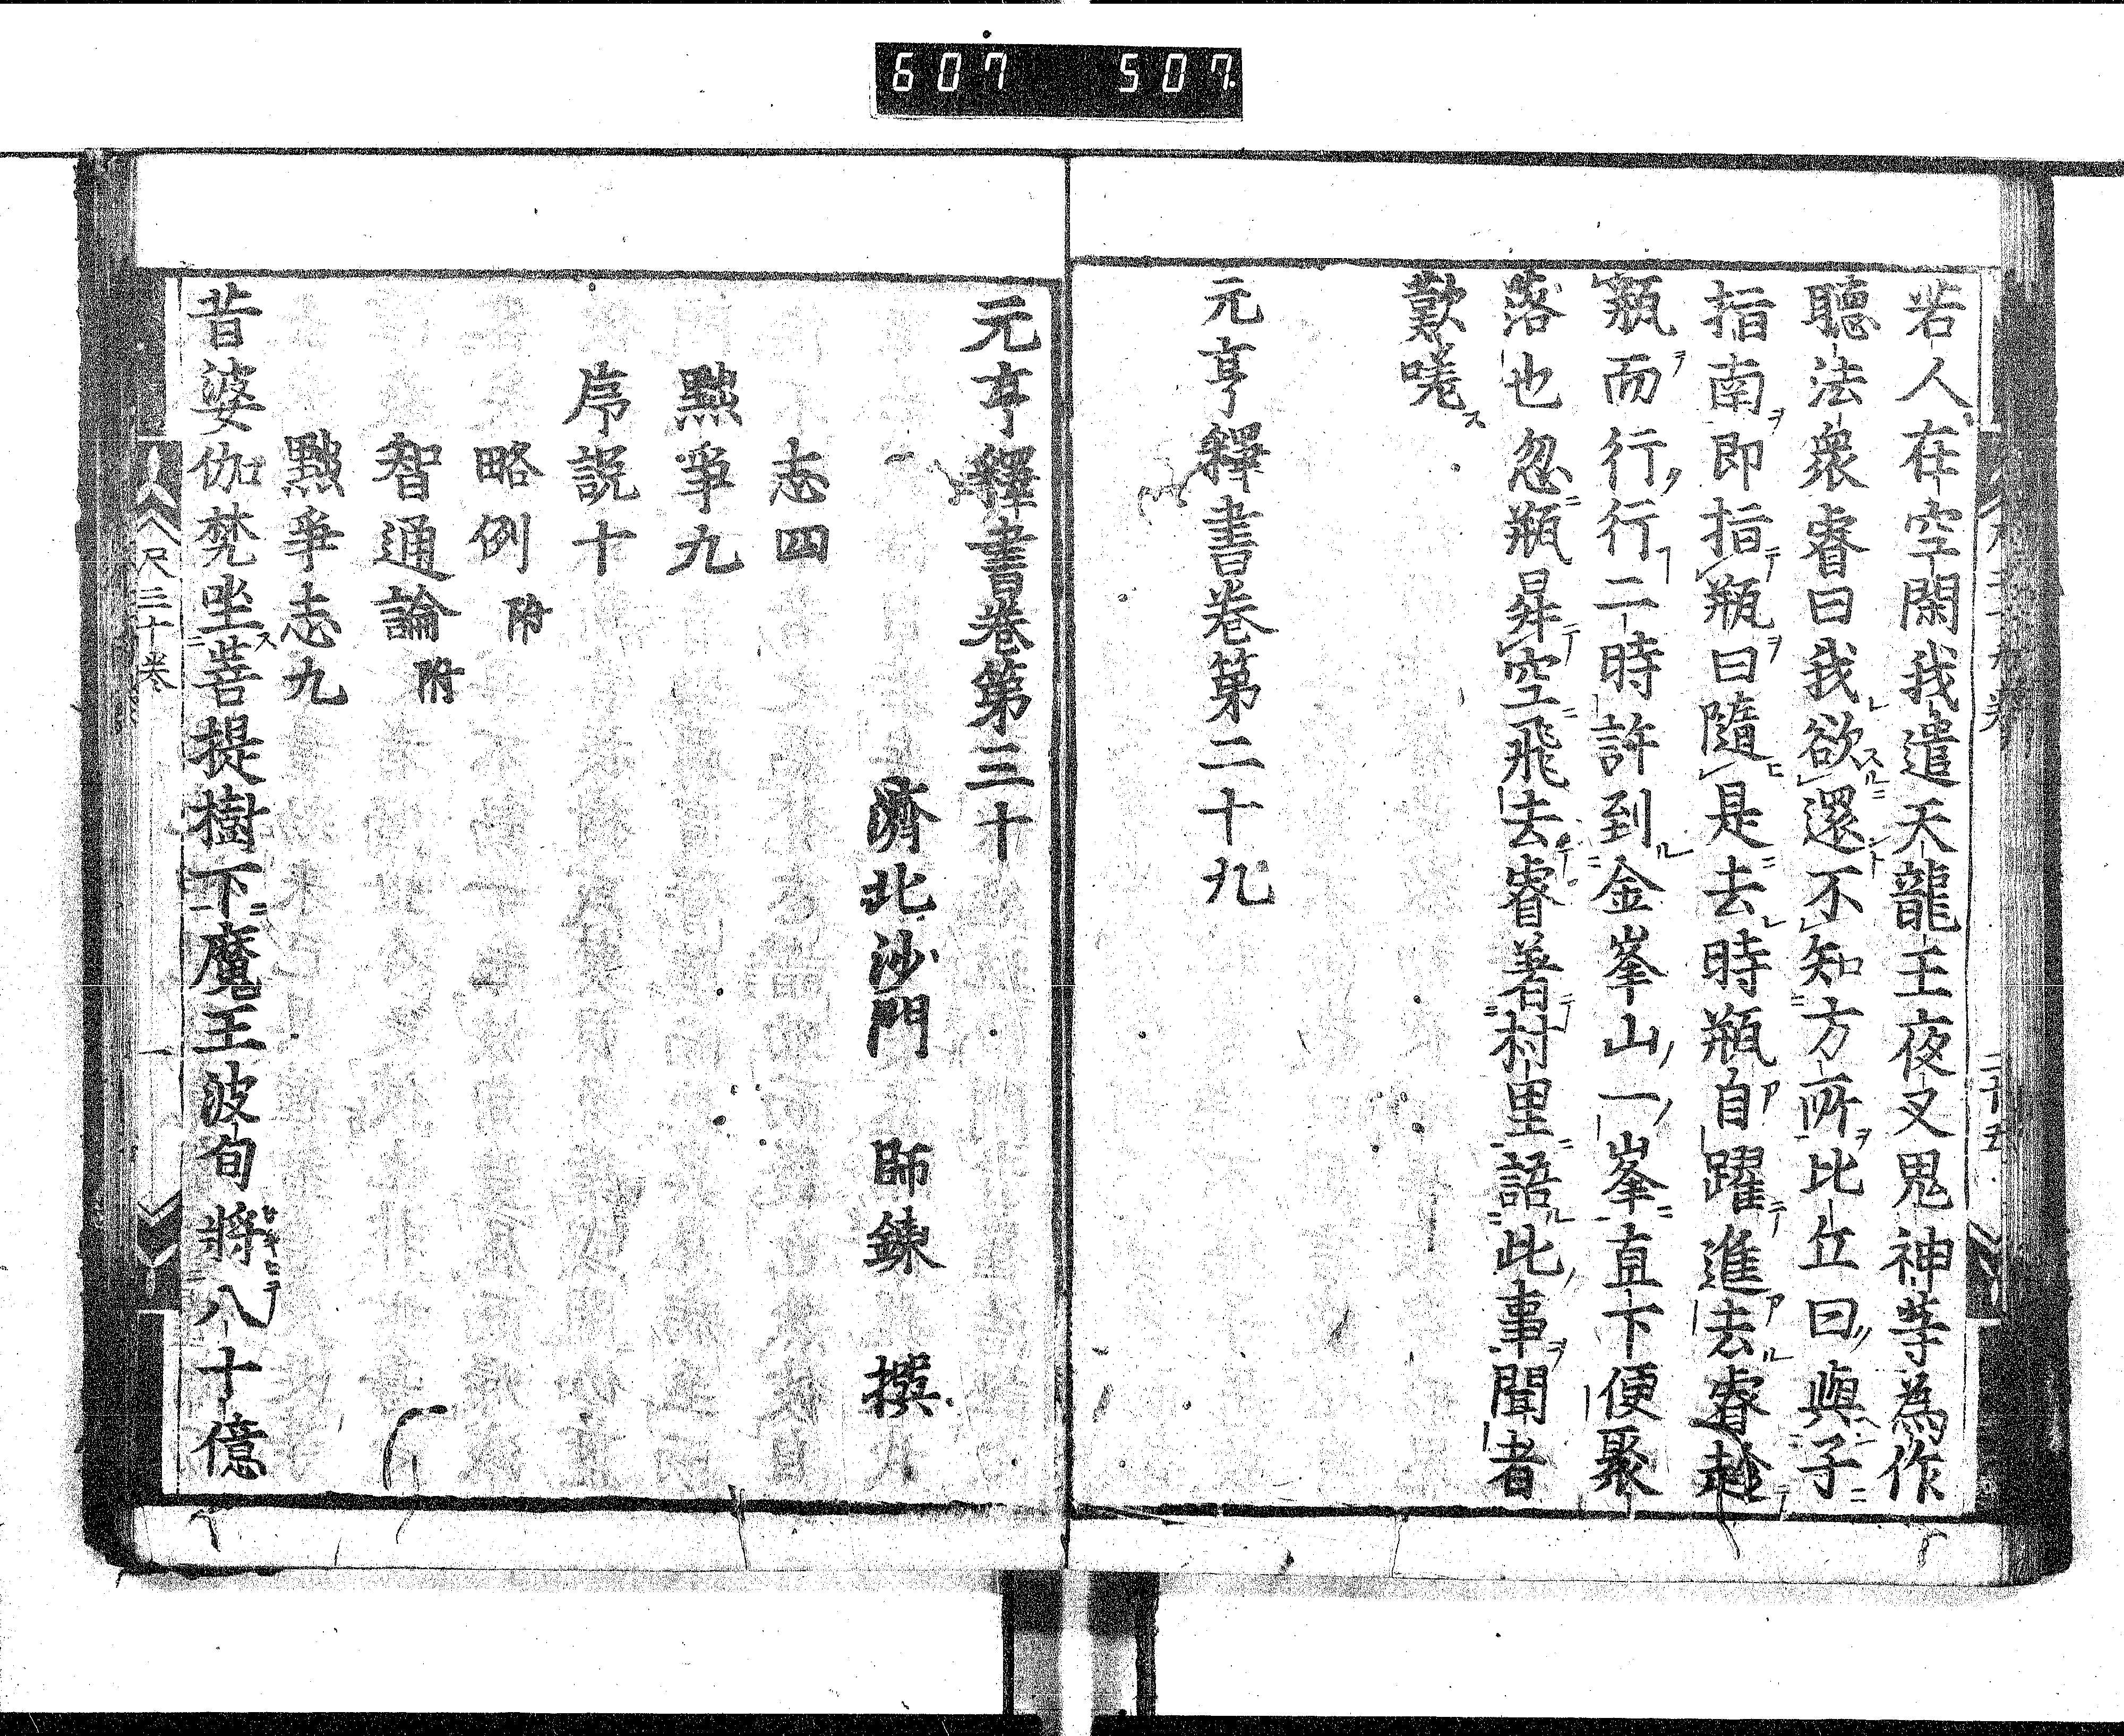 607 507
若人在空閑我遣天龍王夜叉鬼神等為作
聽法衆睿曰我欲還不知方所比丘曰與子
指南即指瓶曰隨是去時瓶自躍進去睿趁
瓶而行行二時許到金峯山一峯直下便聚
落也忽瓶昇空飛去睿著村里語此事聞者
歎嗟
元亨釋書卷第二十九
元亨釋書卷第三十
濟北沙門 師鍊 撰
志四
黜爭九
序說十
略例 附
智通論 附
黜爭志九
昔婆伽梵坐菩提樹下魔王波旬將八十億
尺三十卷 一